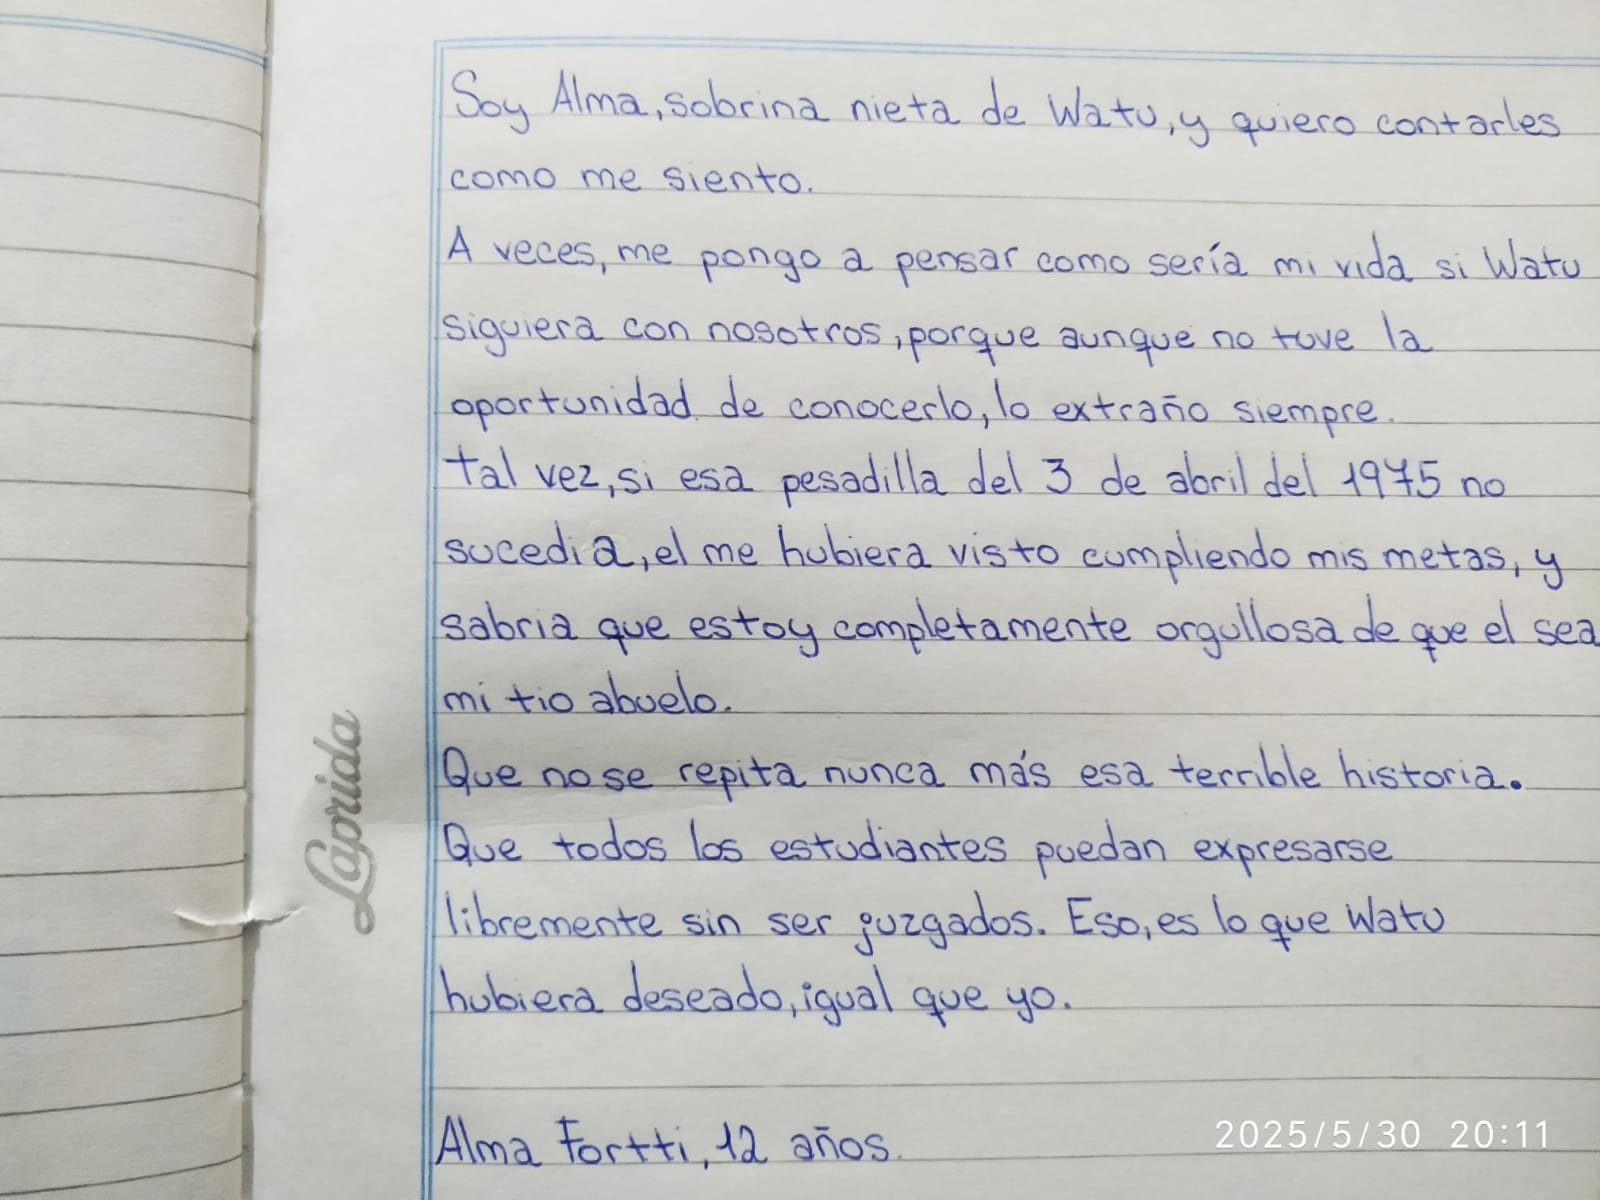 Soy Alma, sobrina nieta de Watu, y quiero contarles
como me siento.
A veces, me pongo a pensar como sería mi vida si Watu
siguiera con nosotros, porque aunque no tuve la
oportunidad de conocerlo, lo extraño siempre.
tal vez, si esa pesadilla del 3 de abril del 1975 no
sucedia, el me hubiera visto cumpliendo mis metas, y
sabria que estoy completamente orgullosa de que el sea
mi tio abuelo.
Que no se repita nunca más esa terrible historia.
Que todos los estudiantes puedan expresarse
libremente sin ser juzgados. Eso, es lo que Watu
hubiera deseado, igual que yo.
Alma Fortti, 12 años.
Laprida
2025/5/30 20:11